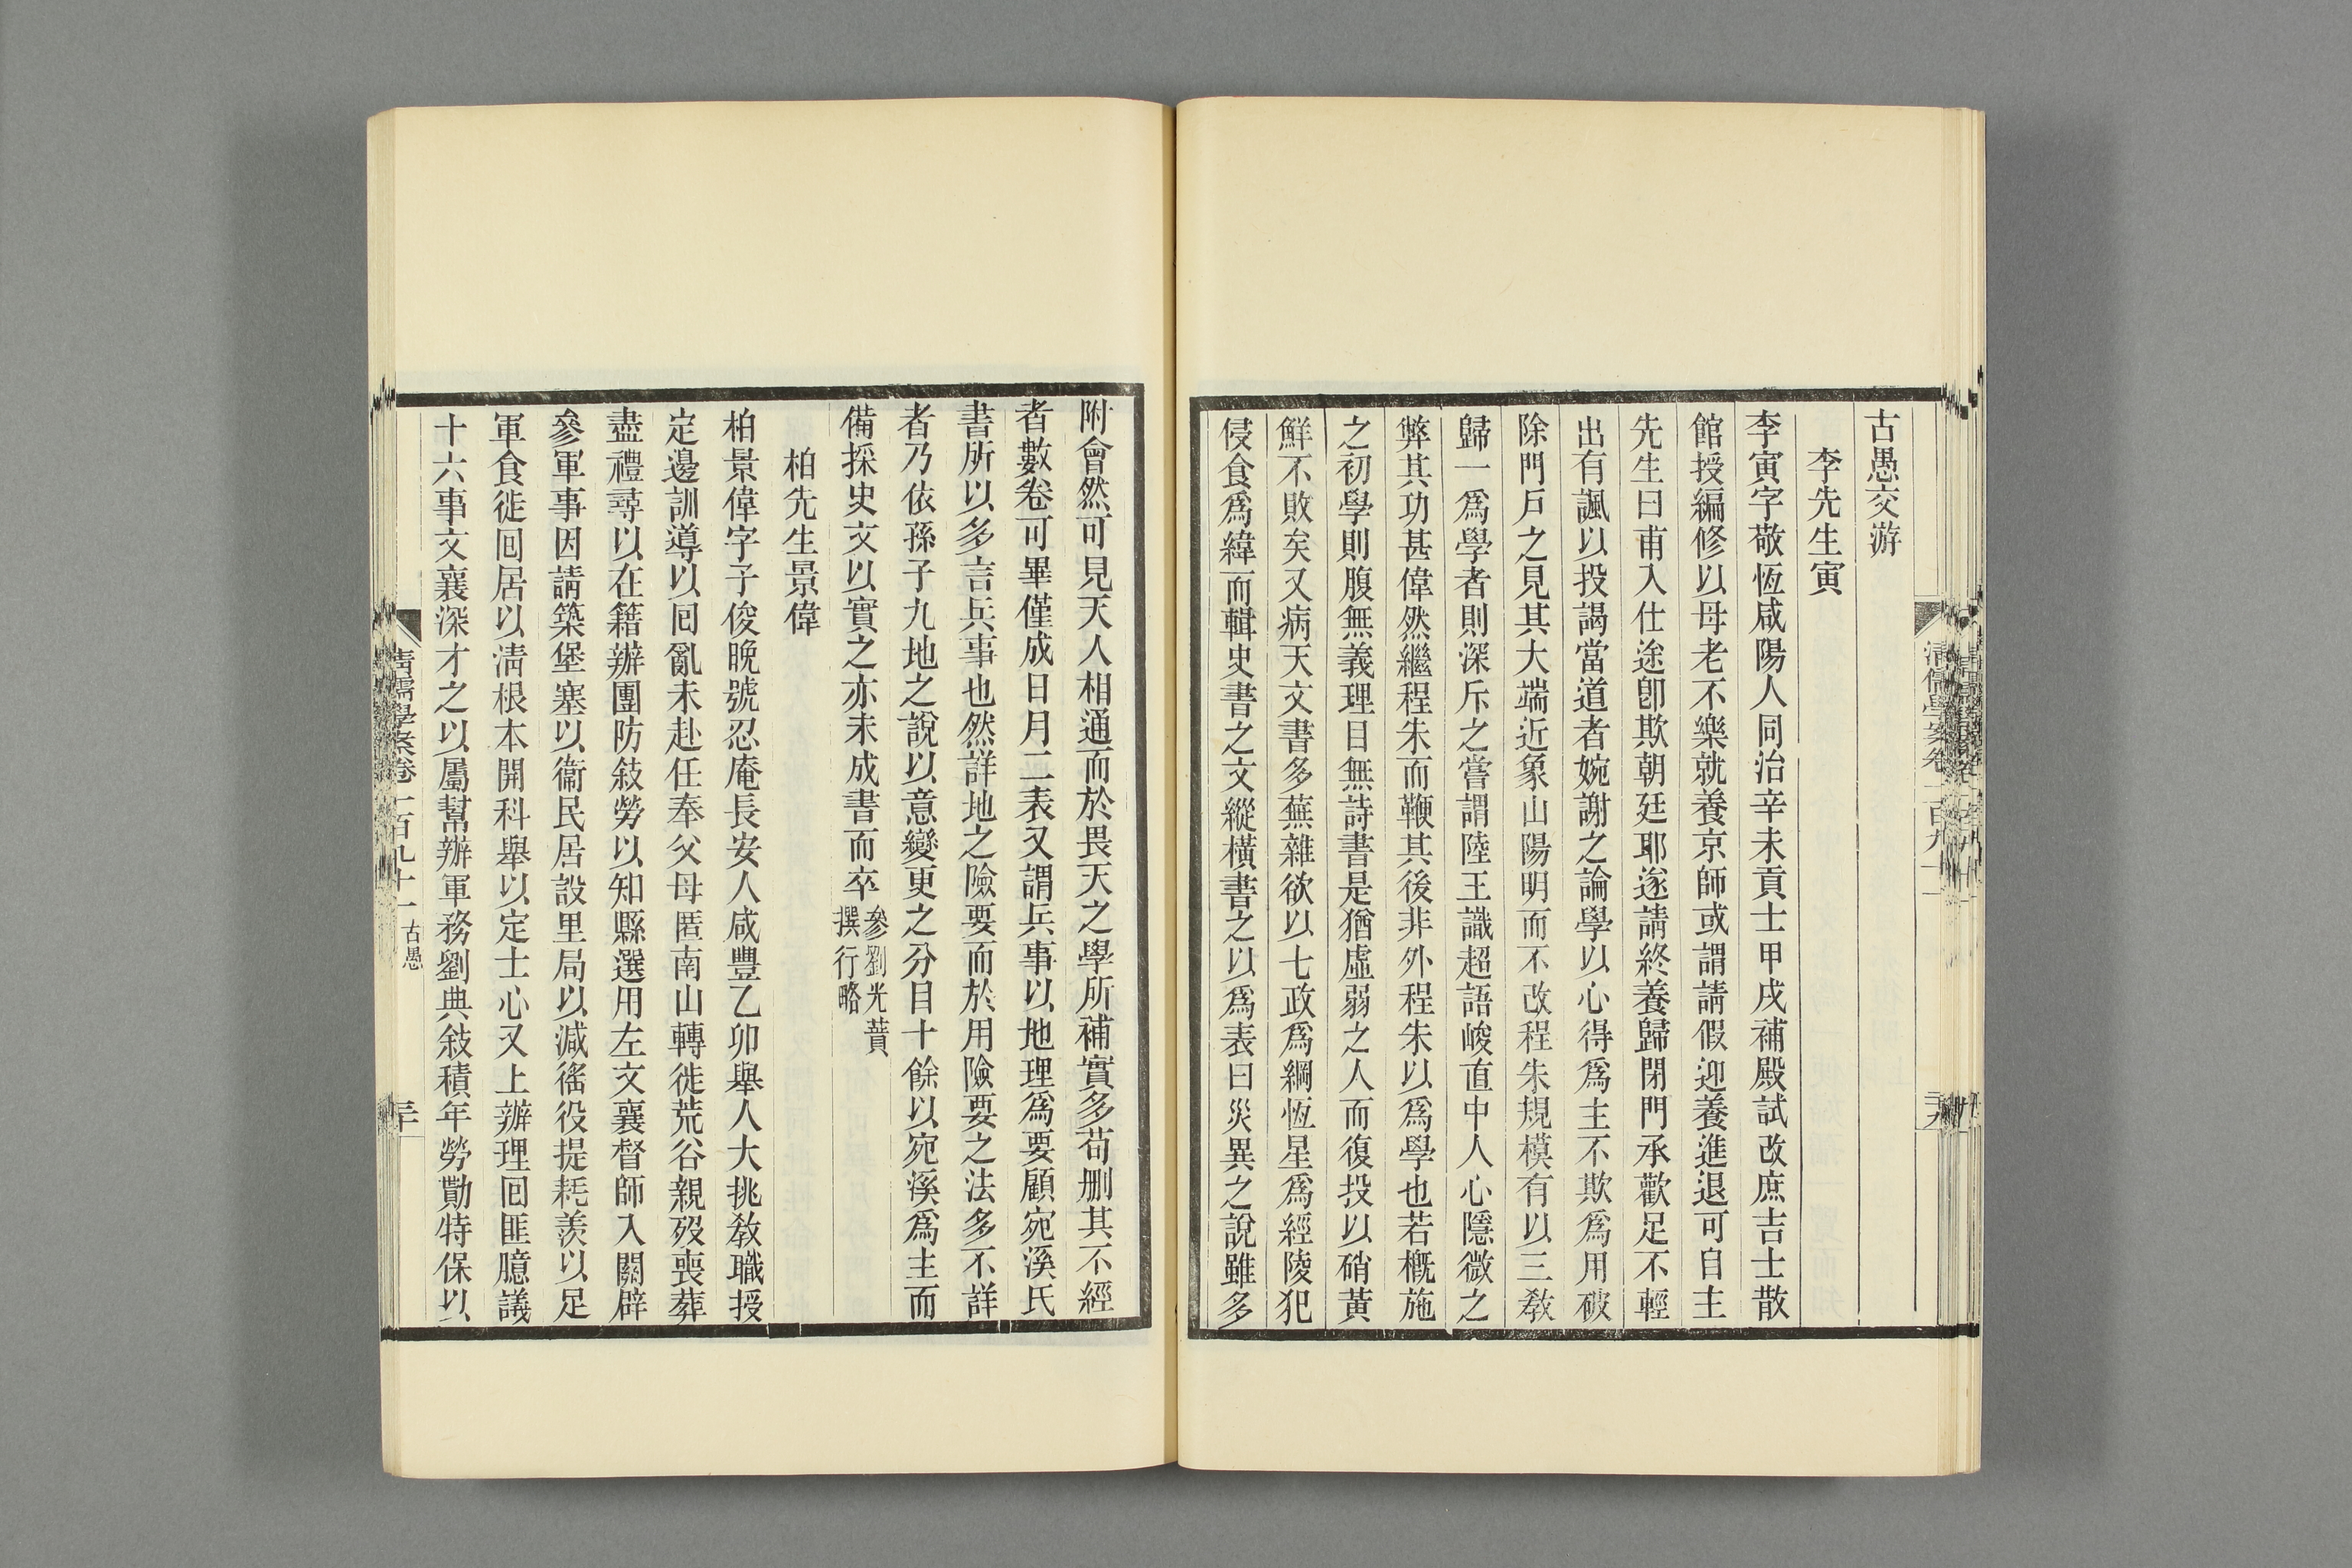 古愚交游
李先生寅
李寅字敬恆咸陽人同治辛未貢士甲戌補殿試改庶吉士散
館授編修以母老不樂就養京師或謂請假迎養進退可自主
先生曰甫入仕途卽欺朝廷耶遂請終養歸閉門承歡足不輕
出有諷以投謁當道者婉謝之論學以心得爲主不欺爲用破
除門戶之見其大端近象山陽明而不改程朱規模有以三敎
歸一爲學者則深斥之嘗謂陸王識超語峻直中人心隱微之
弊其功甚偉然繼程朱而鞭其後非外程朱以爲學也若槪施
之初學則腹無義理目無詩書是猶虛弱之人而復投以硝黃
鮮不敗矣又病天文書多蕪雜欲以七政爲綱恆星爲經陵犯
侵食爲緯而輯史書之文縱橫書之以爲表曰災異之說雖多
附會然可見天人相通而於畏天之學所補實多苟删其不經
者數卷可畢僅成日月二表又謂兵事以地理爲要顧宛溪氏
書所以多言兵事也然詳地之險要而於用險要之法多不詳
者乃依孫子九地之說以意變更之分目十餘以宛溪爲主而
備採史文以實之亦未成書而卒參劉光蕡撰行略
柏先生景偉
柏景偉字子俊晚號忍庵長安人咸豐乙卯舉人大挑敎職授
定邊訓導以回亂未赴任奉父母匿南山轉徙荒谷親歿喪葬
盡禮尋以在籍辦團防敍勞以知縣選用左文襄督師入關辟
參軍事因請築堡塞以衞民居設里局以減徭役提耗羨以足
軍食徙回居以淸根本開科舉以定士心又上辦理回匪臆議
十六事文襄深才之以屬幫辦軍務劉典敍積年勞勩特保以
淸儒學案卷一百九十一 古愚
三十
淸儒學案卷一百九十一